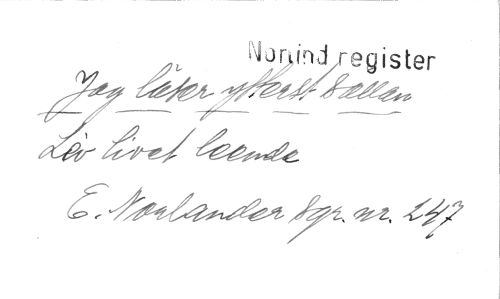 Norlind register
Jag läser ytterst sällan
Lev livet leende
E. Norlander Sgr. nr. 247